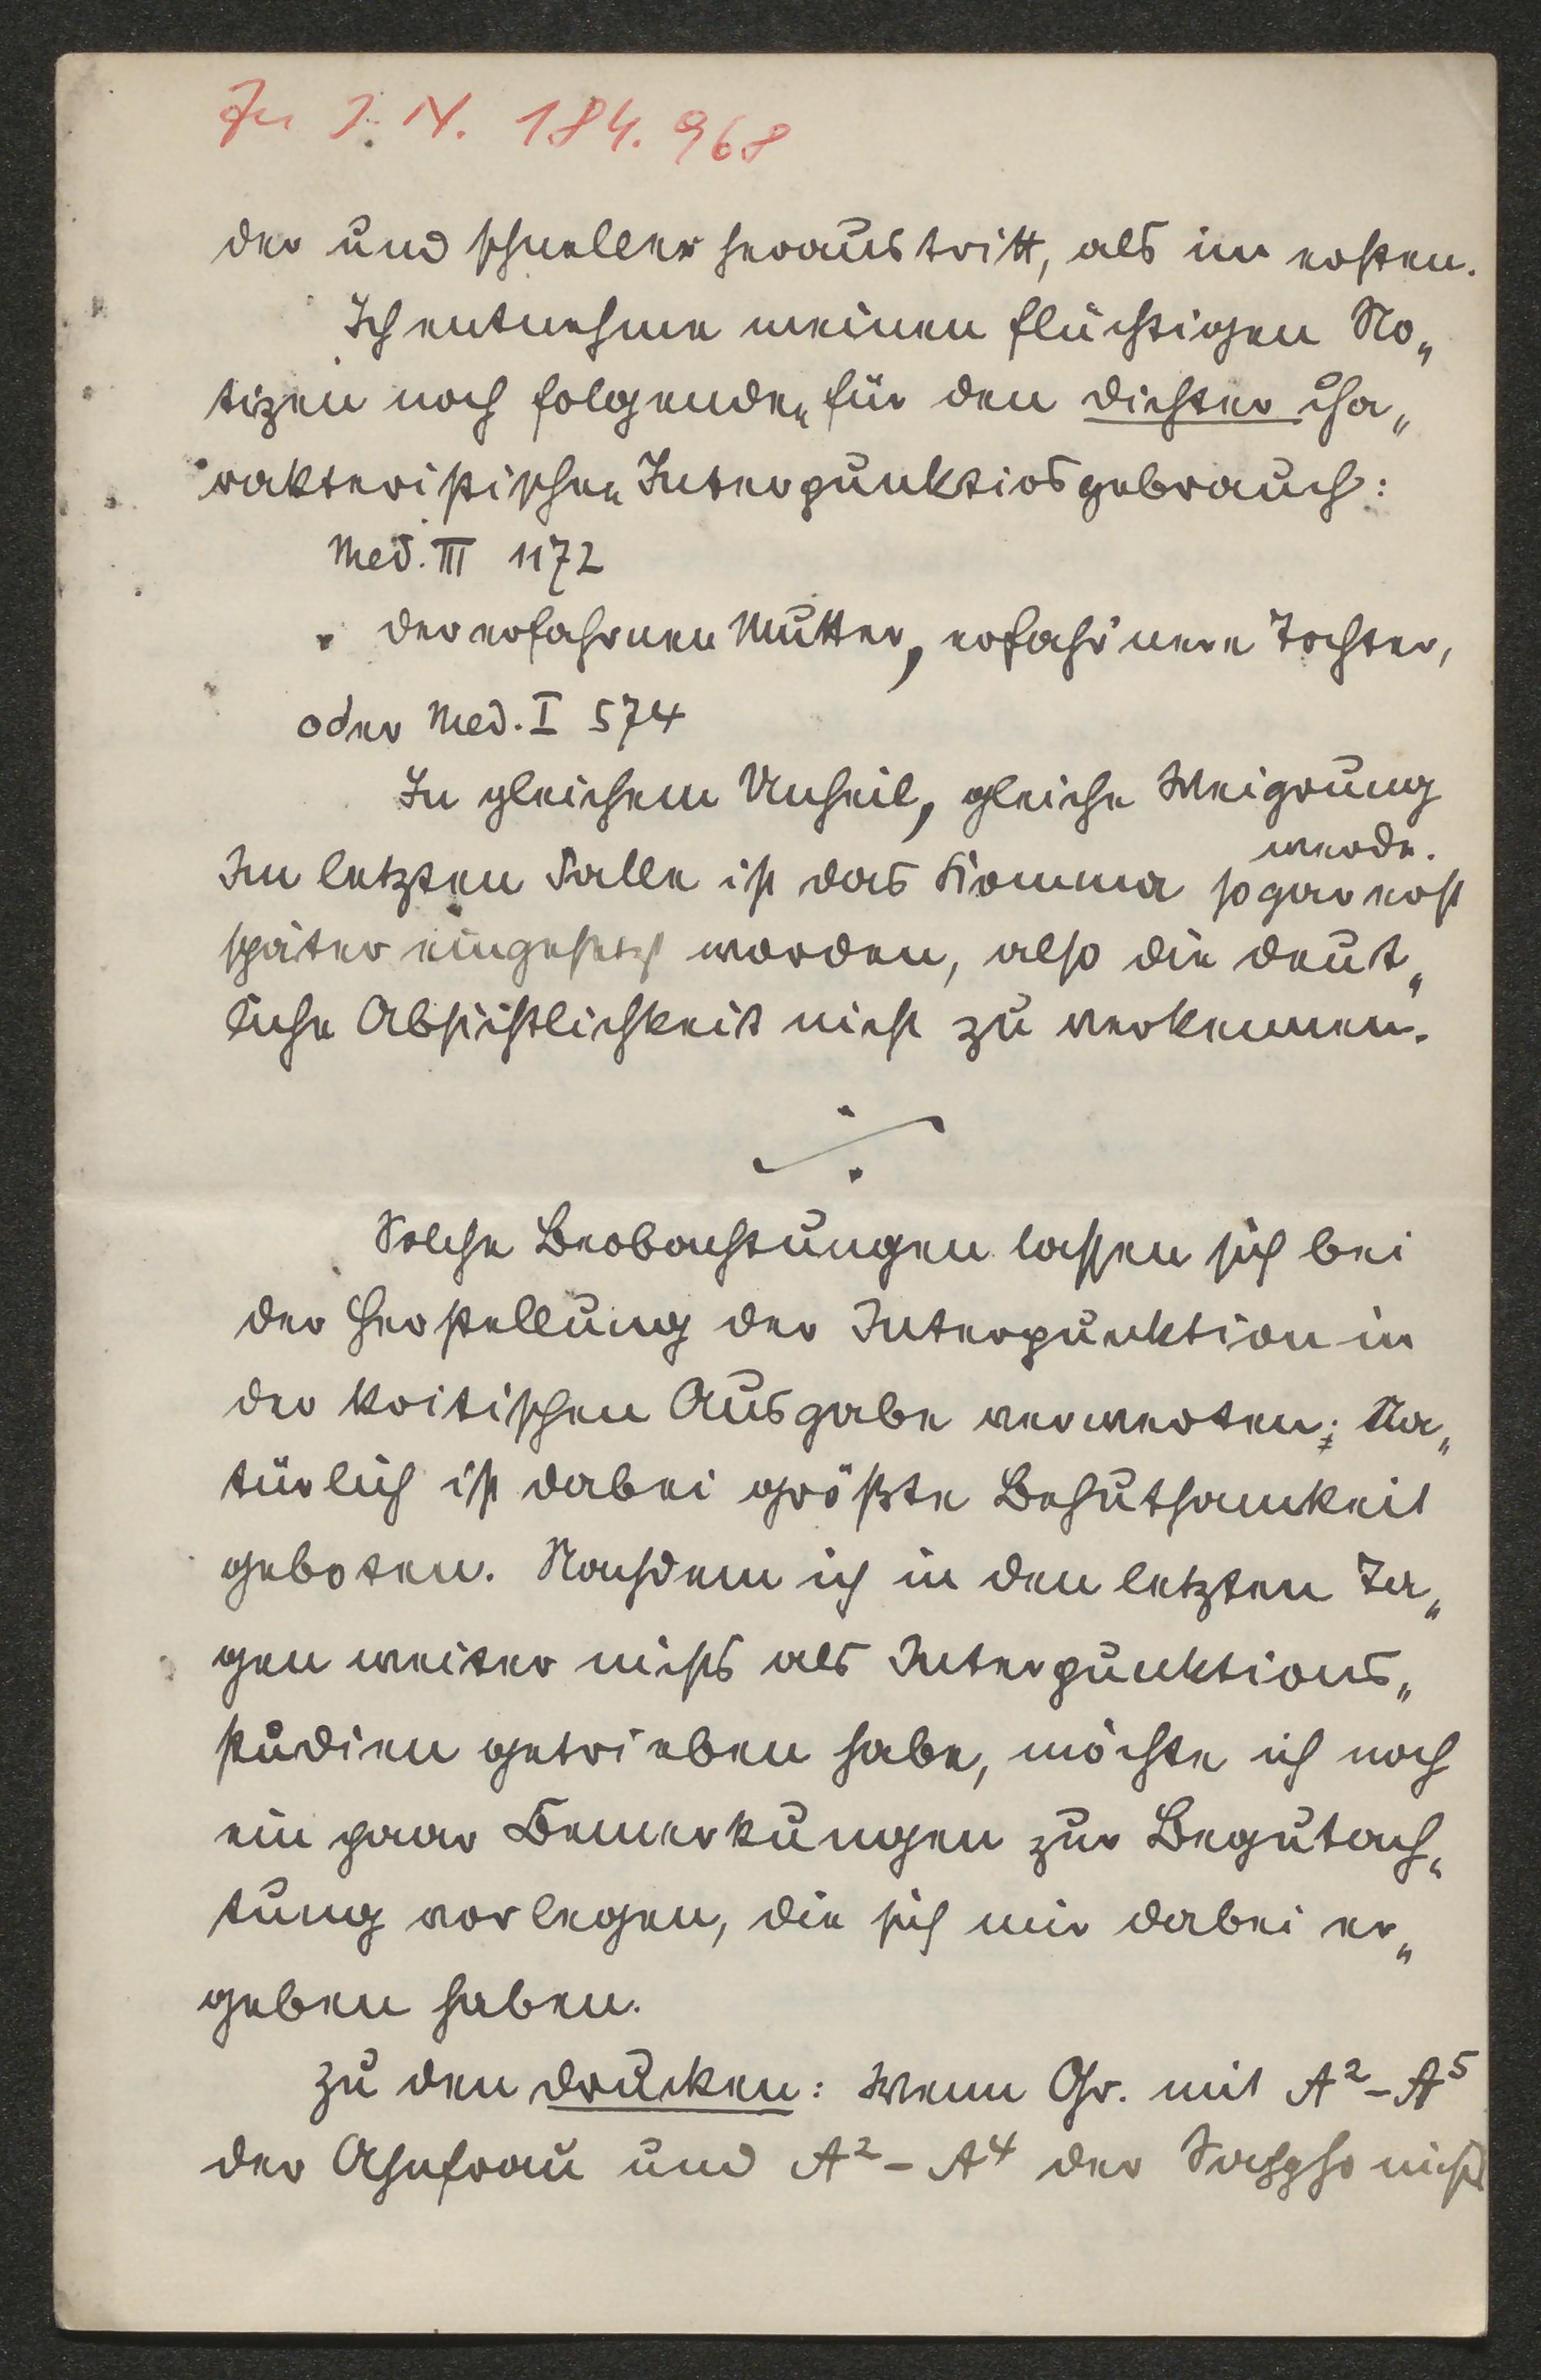 Zu I. N. 184.968
der und schneller heraustritt, als im ersten.
Ich entnehme meinen flüchtigen No„
tizen noch folgenden für den Dichter cha„
rakteristischen Interpunktiosgebrauch:
Med. III 1172
der erfahrnen Mutter, erfahr'nere Tochter,
oder Med. I 574
In gleichem Unheil, gleiche Weigrung
werde.
Im letzten Falle ist das Komma sogar erst
später eingesetzt worden, also die deut„
liche Absichtlichkeit nicht zu verkennen.
Solche Beobachtungen lassen sich bei
der Herstellung der Interpunktion in
der kritischen Ausgabe verwerten; Na„
türlich ist dabei größte Behutsamkeit
geboten. Nachdem ich in den letzten Ta„
gen weiter nichts als Interpunktions„
studien getrieben habe, möchte ich noch
ein paar Bemerkungen zur Begutach„
tung vorlegen, die sich mir dabei er„
geben haben.
Zu den Drucken: Wenn Gr. mit A²-A⁵
der Ahnfrau und A²-A⁴ der Sappho nicht